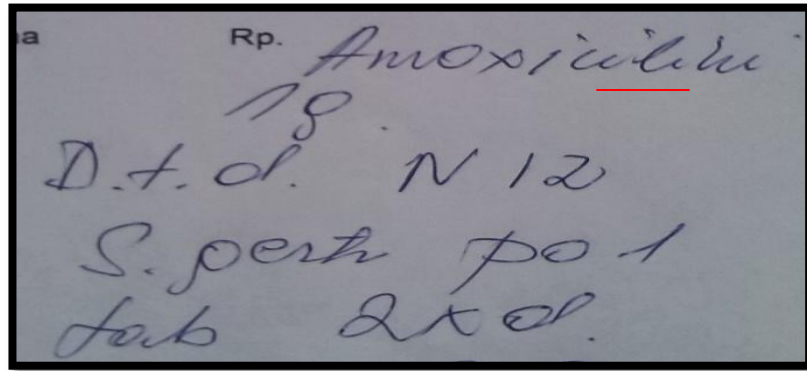 na Rp. Amoxicilini
1g.
D.t.d. N 12
S. gerti po 1
tab 2xd.